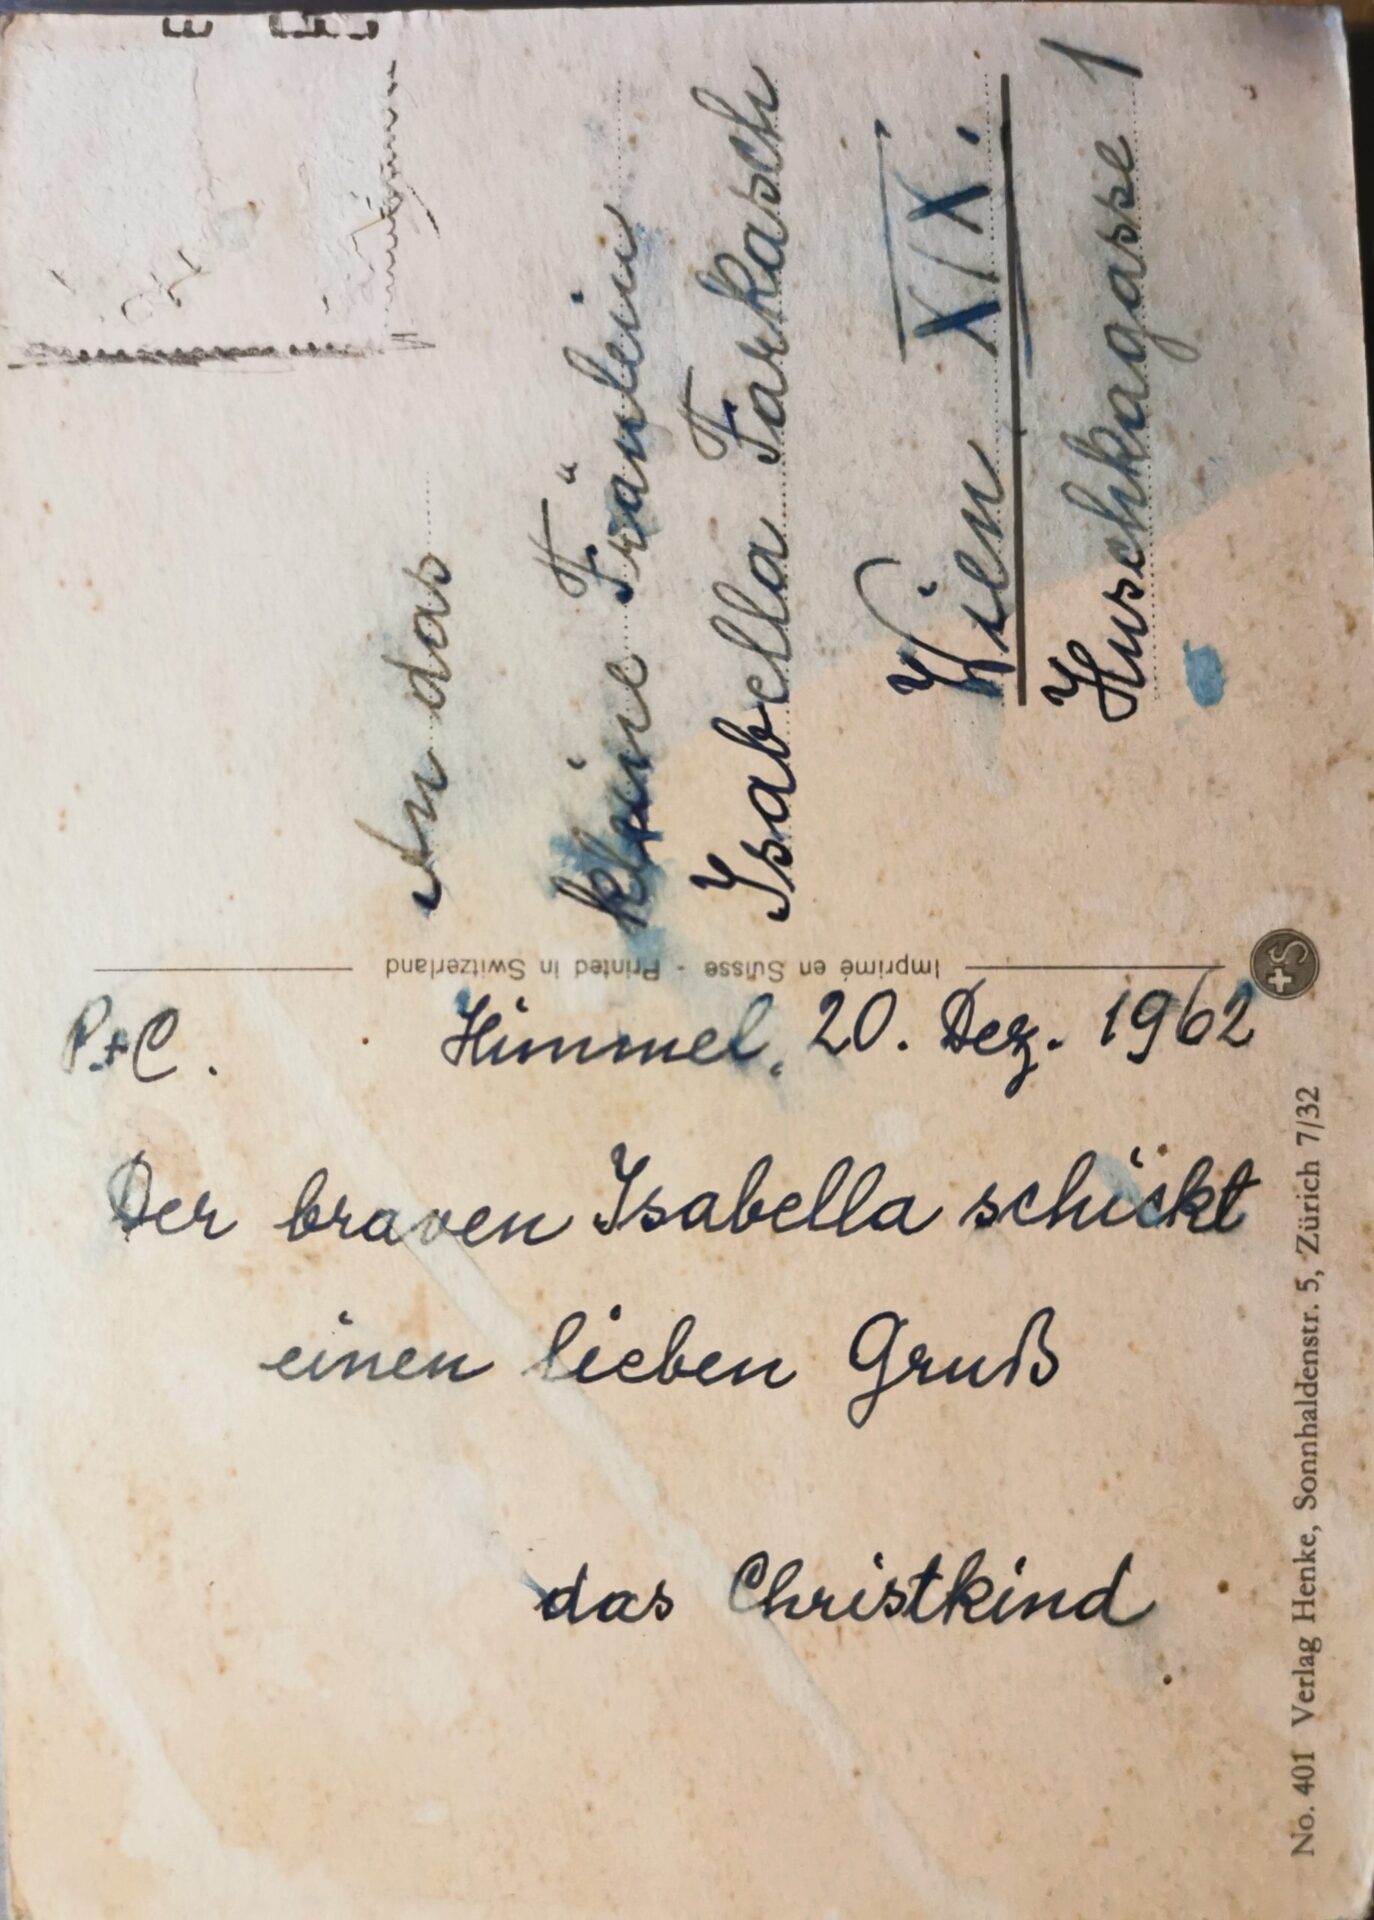 An das
kleine Fräulein
Isabella Farkasch
Wien XIX.
Huschkagasse 1
Imprimé en Suisse - Printed in Switzerland
S+
P.+C. Himmel, 20. Dez. 1962
Der braven Isabella schickt
einen lieben Gruß
das Christkind
No. 401 Verlag Henke, Sonnhaldenstr. 5, Zürich 7/32